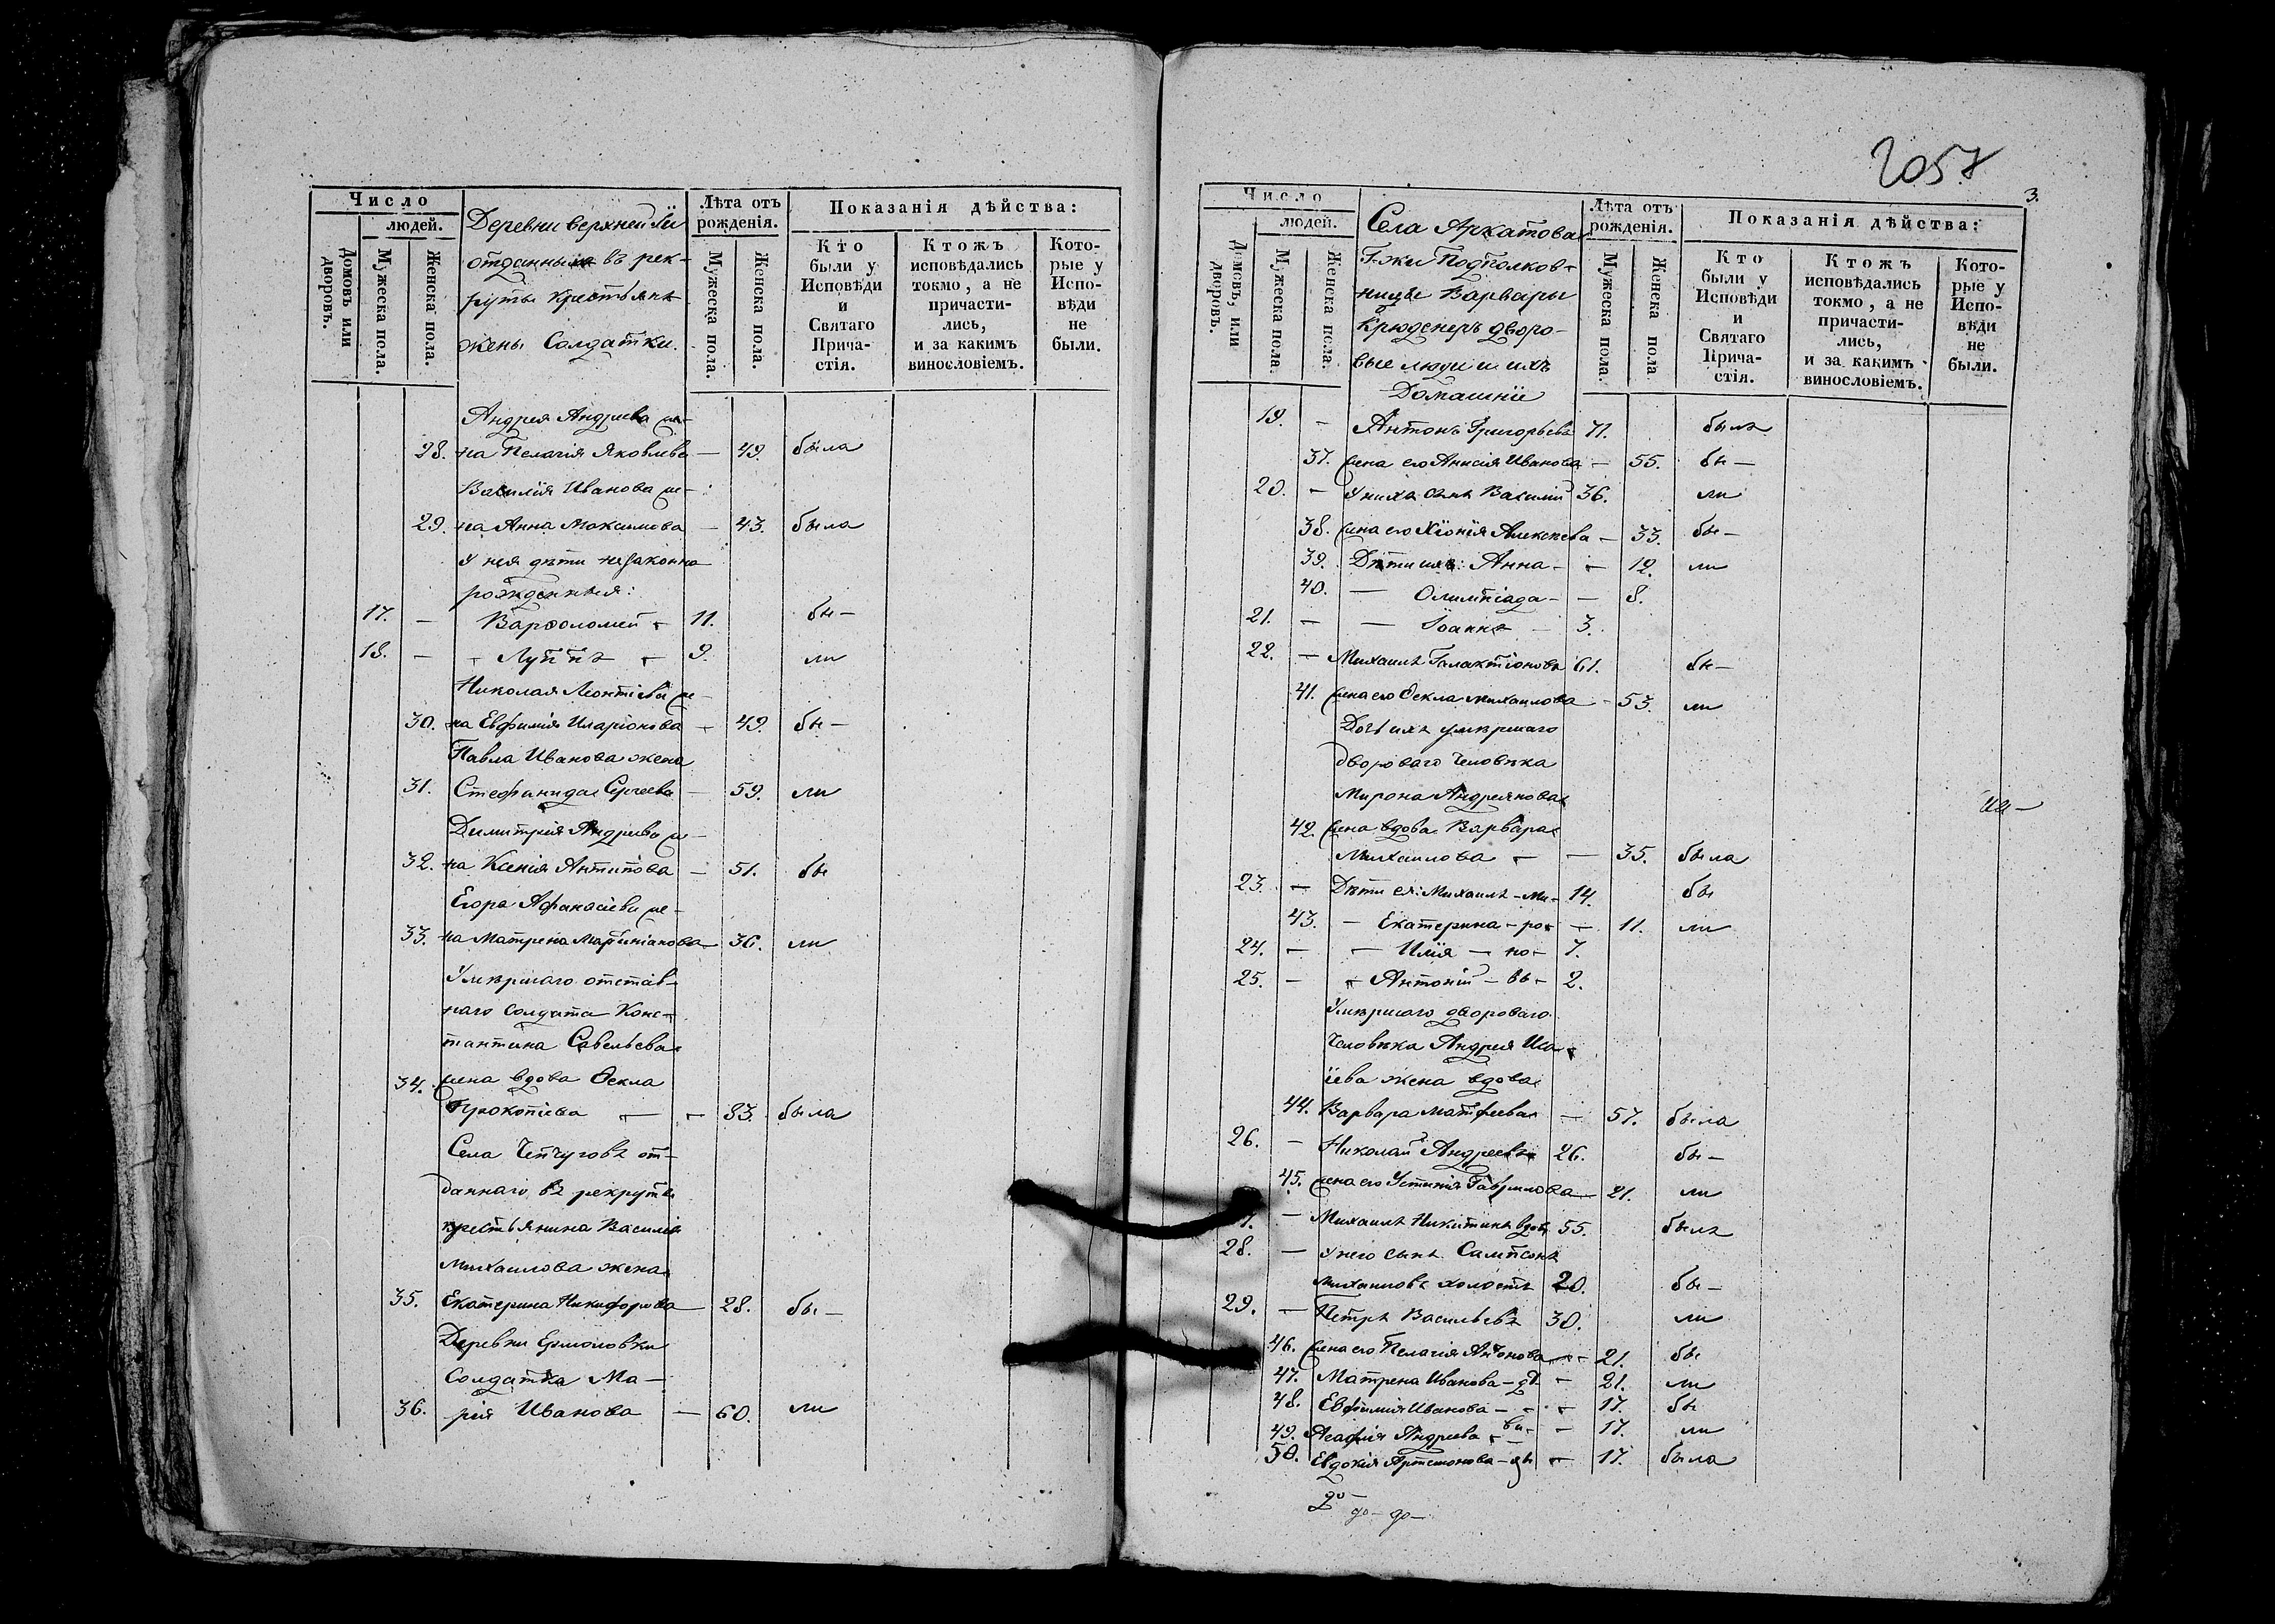 Число
людей.
Домовъ или дворовъ.
Мужеска пола.
Женска пола.
Деревни верхней
отданныхъ въ рек-
руты крестьянъ
жены Солдатки.
Лѣта отъ рожденія.
Мужеска пола.
Женска пола.
Показанія дѣйства:
Кто были у Исповѣди и Святаго Прича-стія.
Ктожъ исповѣдались токмо, а не причасти-лись, и за какимъ винословіемъ.
Кото-рые у Испо-вѣди не были.
Андрея Андреева же-
28. на Пелагія Яковлева — 49. была
Василія Иванова же-
29. на Анна Максимова — 43. была
У нея дѣти незаконно
рожденныя:
17. — Варѳоломей — 11. бы—
18. — Луппъ — 9. ли
Николая Леонтіева же-
30. на Евфимія Иларіонова — 49. бы—
Павла Иванова жена
31. Стефанида Сергеева — 59. ли
Димитрія Андреева же-
32. на Ксенія Антипова — 51. бы
Егора Афанасіева же-
33. на Матрена Мартиніанова — 36. ли
Умершаго отстав-
наго Солдата Конс-
тантина Савельева
34. жена вдова Ѳекла
Прокопіева — — 83. была
Села Чепчуговъ от-
даннаго въ рекруты
крестьянина Василія
Михаилова жена
35. Екатерина Никифорова — 28. бы—
Деревни Ермоловки
Солдатка Ма—
36. рія Иванова — 60. ли
2057
3.
Число
людей.
Домовъ, или дворовъ.
Мужеска пола.
Женска пола.
Села Аркатова
Г-жи Подполков-
ницы Варвары
Крюденеръ дворо-
вые люди и ихъ
Домашніи
Лѣта отъ рожденія.
Мужеска пола.
Женска пола
Показанія дѣйства:
Кто были у Исповѣди и Святаго Прича-стія.
Ктожъ исповѣдались токмо, а не причасти-лись, и за какимъ винословіемъ.
Кото-рые у Испо-вѣди не были.
19. — Антонъ Григорьевъ 71. былъ
37. жена его Анисія Иванова — 55. бы—
20. — У нихъ сынъ Василій 36. ли
38. жена его Хіонія Алексѣева — 33. бы—
39. Дѣти ихъ: Анна — — 12. ли
40. — Олимпіада — — 8.
21. — — Іоаннъ — 3.
22. — Михаилъ Галактіоновъ 61. бы—
41. жена его Ѳекла Михаилова — 53. ли
Дочь ихъ умершаго
двороваго Человѣка
Мирона Андреянова
42. жена вдова Варвара
Михаилова — — 35. была
23. — Дѣти ея: Михаилъ — Ми— 14. бы
43. — Екатерина — ро— — 11. ли
24. — — Илія — но— 7.
25. — — Антоній — вы— 2.
Умершаго двороваго
Человѣка Андрея Иса-
іева жена вдова
44. Варвара Матфеева — 57. была
26. — Николай Андреевъ 26. бы—
45. жена его Устинія Гаврилова — 21. ли
7. — Михаилъ Никитинъ вдов 55. былъ
28. — У него сынъ Сампсонъ
Михаиловъ холостъ 20. бы—
29. — Петръ Васильевъ 30. ли
46. жена его Пелагія Антонова — 21. бы
47. Матрена Иванова — дѣ — 21. ли
48. Евфимія Иванова — — — 17. бы
49. Агафія Андреева — ви— — 17. ли
50. Евдокія Артемонова — цы — 17. была